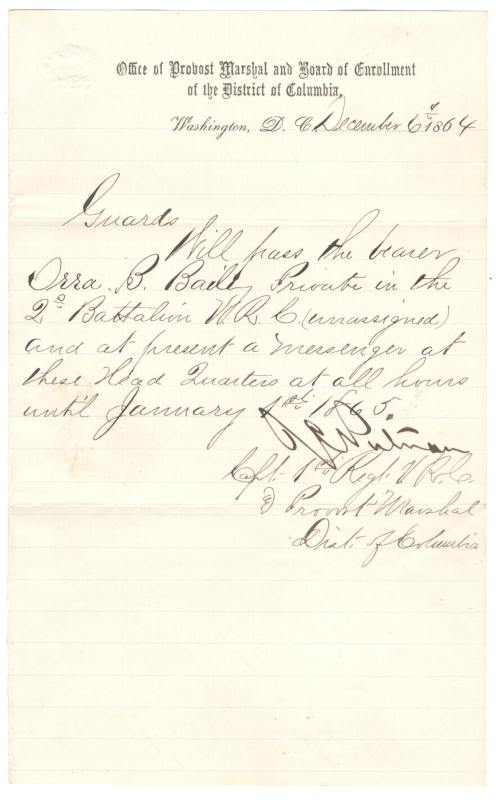 Office of Provost Marshal and Board of Enrollment
of the District of Columbia,
Washington, D. C. December 6th 1864
Guards
Will pass the bearer
Orra. B. Bailey Private in the
2d Battalion V. R. C. (unassigned)
and at present a messenger at
these Head Quarters at all hours
until January 1st 1865.
Putnam
Capt. 1st Regt. V. R. C.
& Provost Marshal
Dist. of Columbia